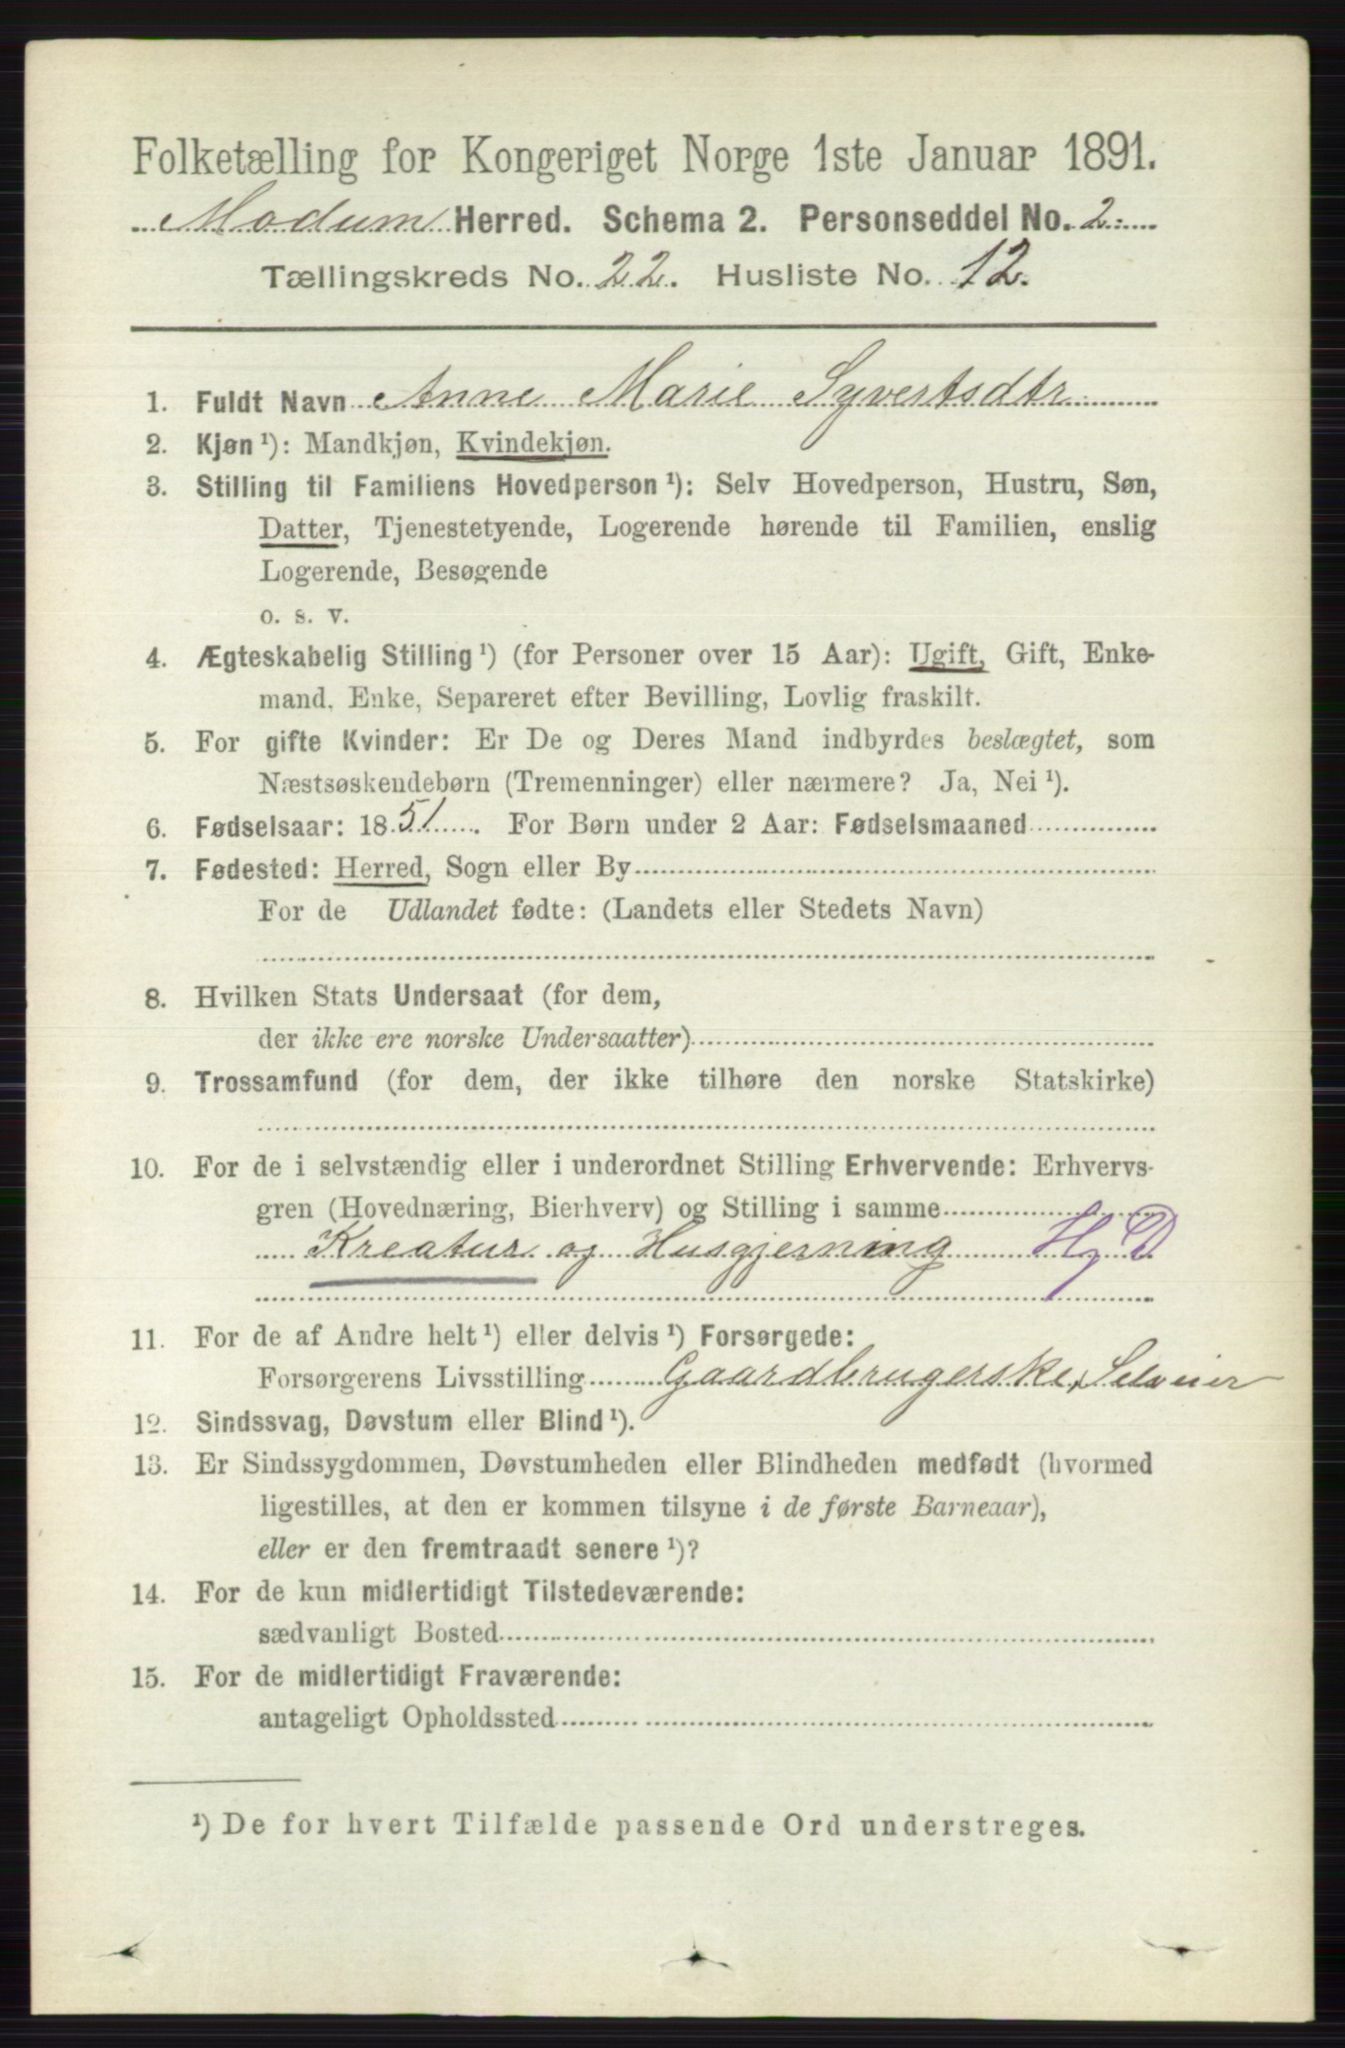 Folketælling for Kongeriget Norge 1ste Januar 1891.
Modum Herred. Schema 2. Personseddel No. 2.
Tællingskreds No. 22. Husliste No. 12.
1. Fuldt Navn Anne Marie Syvertsdtr
2. Kjøn ¹): Mandkjøn, Kvindekjøn.
3. Stilling til Familiens Hovedperson ¹): Selv Hovedperson, Hustru, Søn,
Datter, Tjenestetyende, Logerende hørende til Familien, enslig
Logerende, Besøgende
o. s. v.
4. Ægteskabelig Stilling ¹) (for Personer over 15 Aar): Ugift, Gift, Enke-
mand, Enke, Separeret efter Bevilling, Lovlig fraskilt.
5. For gifte Kvinder: Er De og Deres Mand indbyrdes beslægtet, som
Næstsøskendebørn (Tremenninger) eller nærmere? Ja, Nei ¹).
6. Fødselsaar: 1851. For Børn under 2 Aar: Fødselsmaaned
7. Fødested: Herred, Sogn eller By
For de Udlandet fødte: (Landets eller Stedets Navn)
8. Hvilken Stats Undersaat (for dem,
der ikke ere norske Undersaatter)
9. Trossamfund (for dem, der ikke tilhøre den norske Statskirke)
10. For de i selvstændig eller i underordnet Stilling Erhvervende: Erhvervs-
gren (Hovednæring, Bierhverv) og Stilling i samme
Kreatur og Husgjerning Hj D
11. For de af Andre helt ¹) eller delvis ¹) Forsørgede:
Forsørgerens Livsstilling Gaardbrugerske, Selveier
12. Sindssvag, Døvstum eller Blind ¹).
13. Er Sindssygdommen, Døvstumheden eller Blindheden medfødt (hvormed
ligestilles, at den er kommen tilsyne i de første Barneaar),
eller er den fremtraadt senere ¹)?
14. For de kun midlertidigt Tilstedeværende:
sædvanligt Bosted
15. For de midlertidigt Fraværende:
antageligt Opholdssted
¹) De for hvert Tilfælde passende Ord understreges.